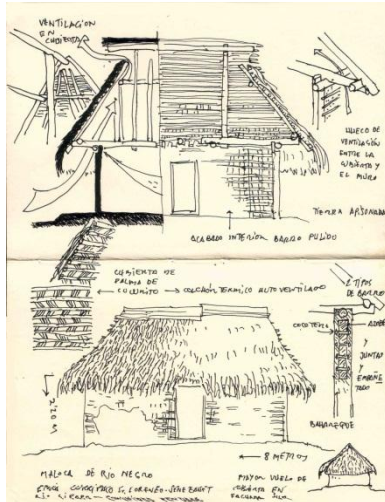 VENTILACION
EN
CUBIERTA
HUECO DE
VENTILACIÓN
ENTRE LA
CUBIERTA Y
EL MURO
TIERRA APISONADA
ACABADO INTERIOR BARRO PULIDO
CUBIERTA DE
PALMA DE
COLCHÓN TERMICO AUTO VENTILADO
2 TIPOS
DE BARRO
ADOBE
Y
JUNTAS
Y
BAHAREQUE
2.20 M
8 METROS
MALOCA DE RÍO NEGRO
MAYOR VUELO DE
CUBIERTA EN
FACHADA SUR